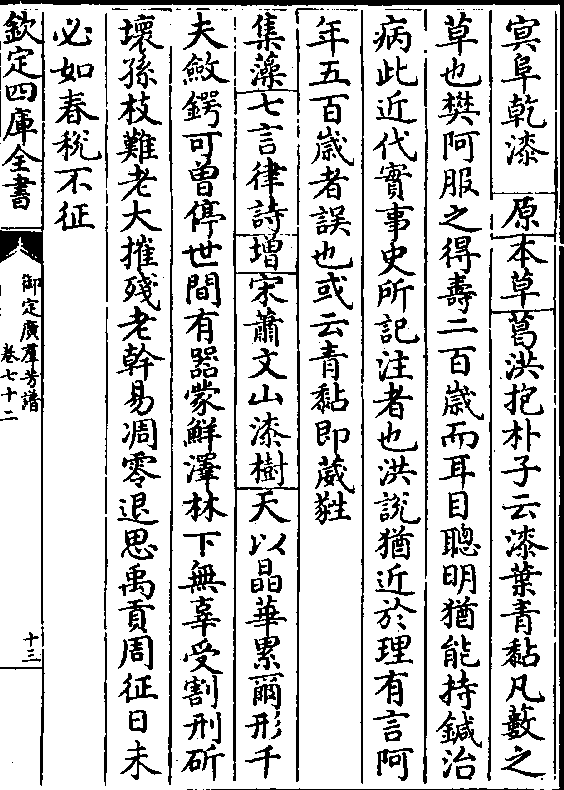 冥阜乾漆　原本草葛洪抱朴子云漆葉青黏凡藪之
草也樊阿服之得壽二百歲而耳目聰明猶能持鍼治
病此近代實事史所記注者也洪說猶近於理有言阿
年五百歲者誤也或云青黏即葳㽔
集藻七言律詩增宋蕭文山漆樹天以晶華累爾形千
夫斂鍔可曾停世間有器蒙鮮澤林下無辜受割刑斫
壞孫枝難老大摧殘老幹易凋零退思禹貢周征日未
必如春稅不征
欽定四庫全書
御定廣羣芳譜
卷七十二
十三